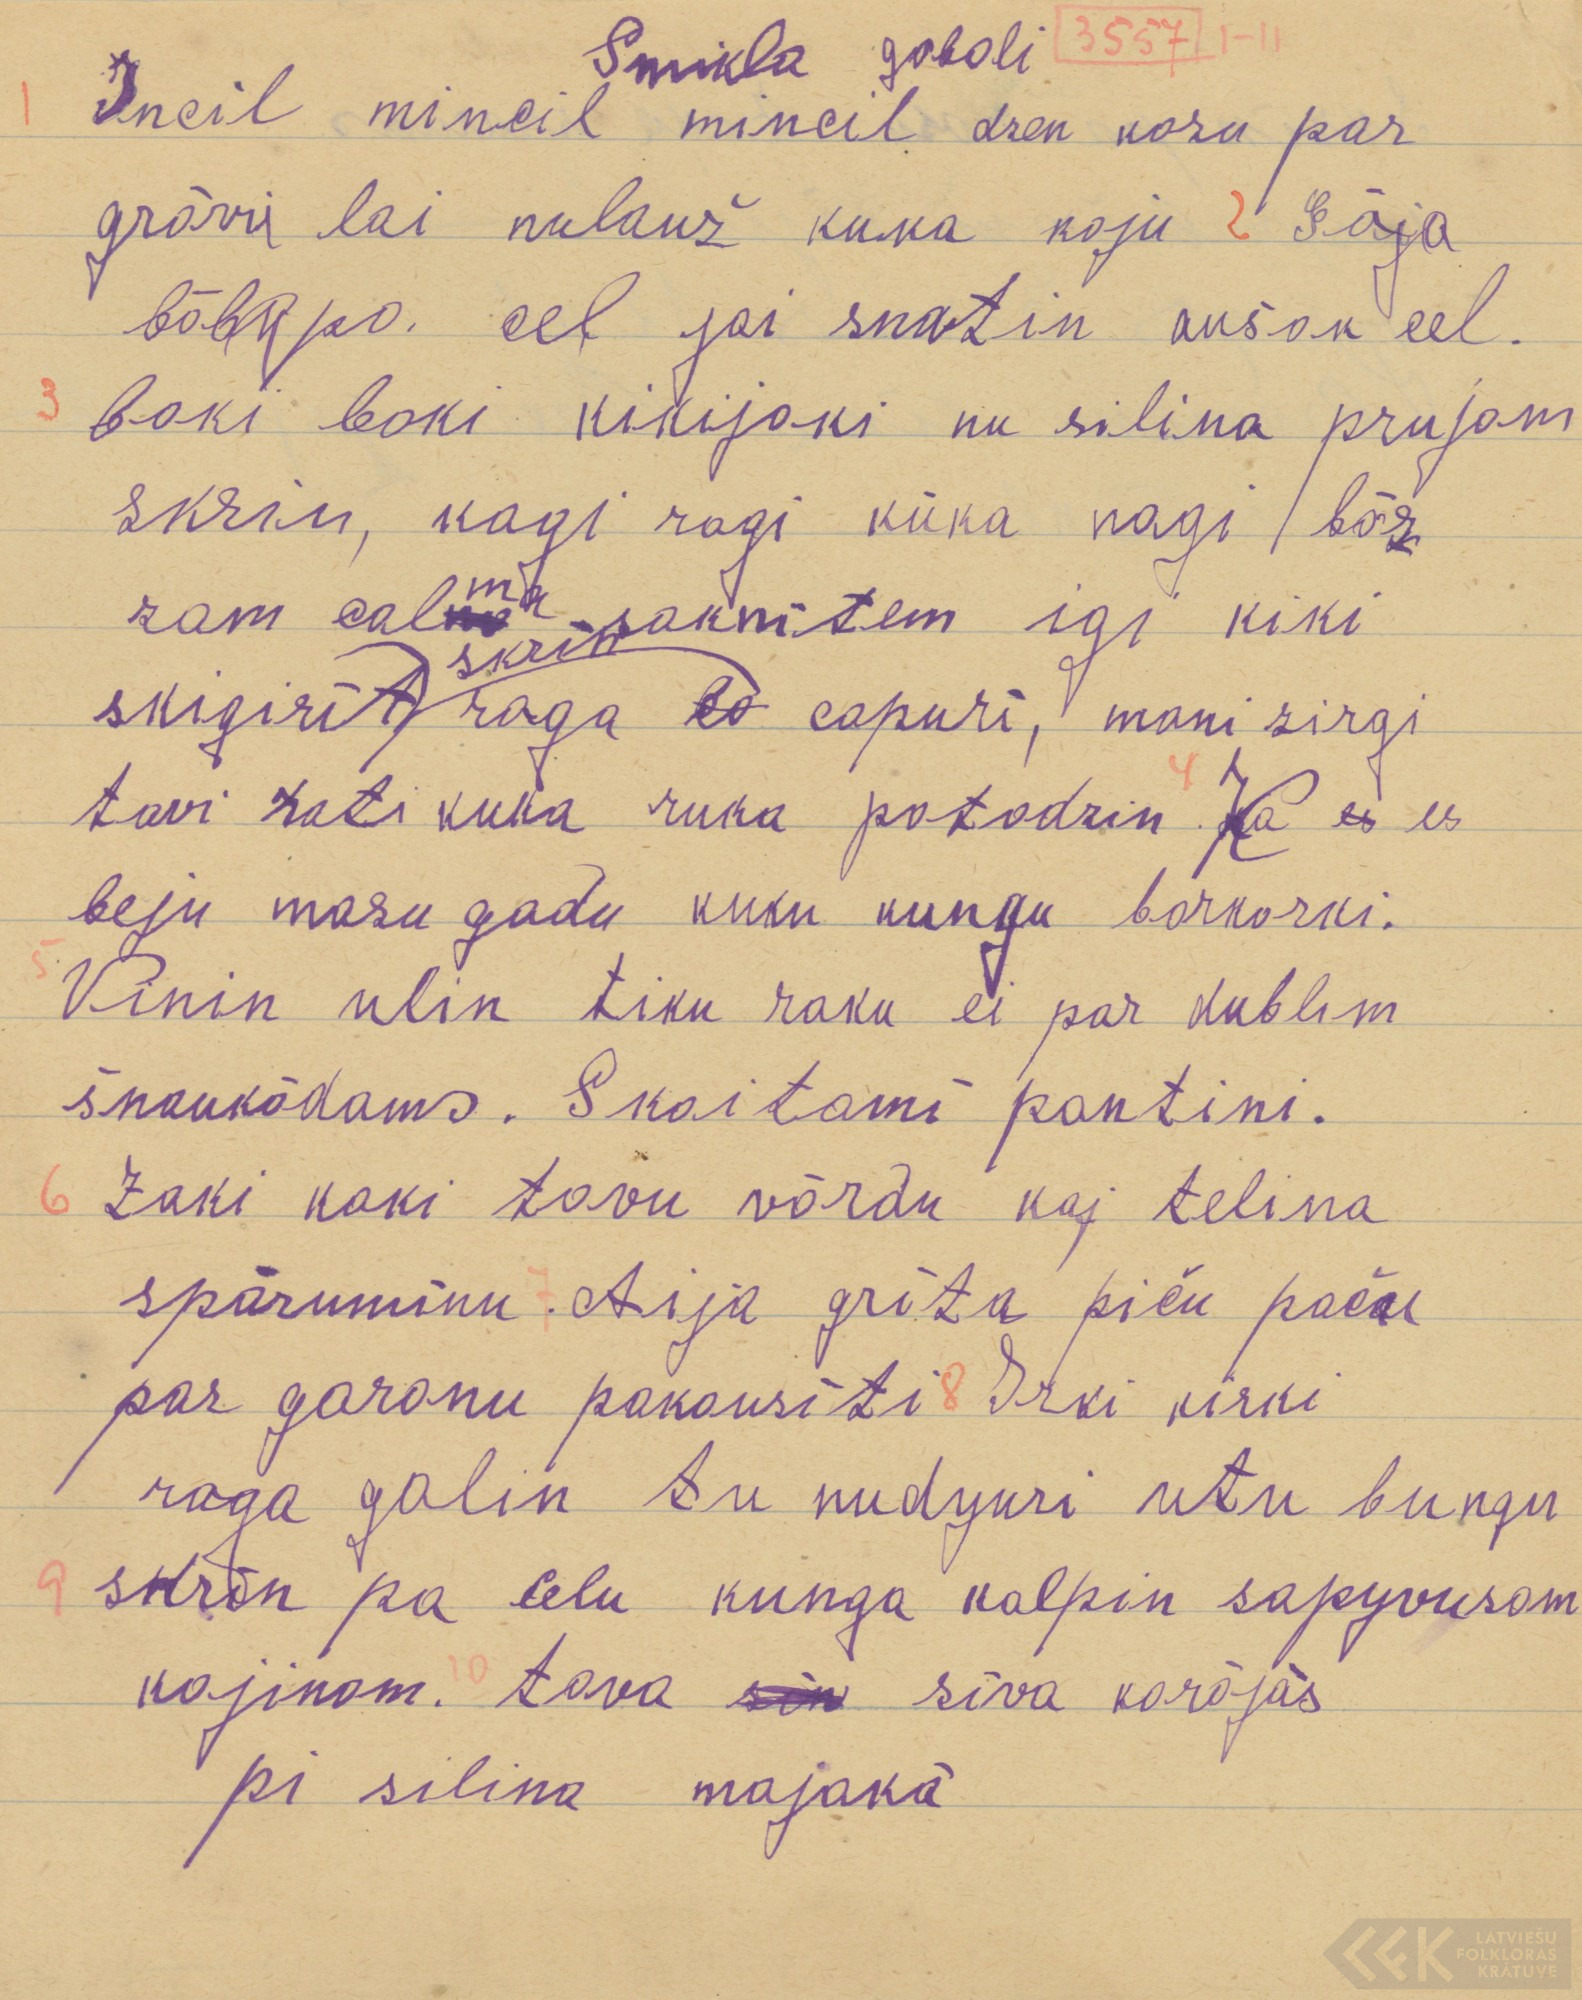 Smikla goboli 3557 1-11
1 Incil mincil mincil dzen kozu par
grōvi lai nulauž kuka koju 2 Gōja
bōba po. cel jai snotin aušok cel.
3 boki boki kikijoki nu silina prujom
skrin, kagi ragi kūka nagi bōz
zam calma saknitem igi kiki
skigirīt skrin raga capuri, mani zirgi
tavi rati kuka ruka potodzin. 4 Ka es es
beju mozu godu kuku kungu borkorki.
5. Vinin ulin tiku raku ei par kublim
šnaukōdams. Skaitami pantini.
6 Zaki kaki tovu vōrdu kaj telina
spāruminu. 7 Aija grīta piču paču
par garonu pakausīti 8 Irki kirki
raga golin tu nudyuri utu bungu
9 skrōn pa celu kunga kolpin sapyvusom
kojinom. 10 tova sin zīva karōjās
pi silina majakā
LATVIEŠU
FOLKLORAS
KRĀTUVE